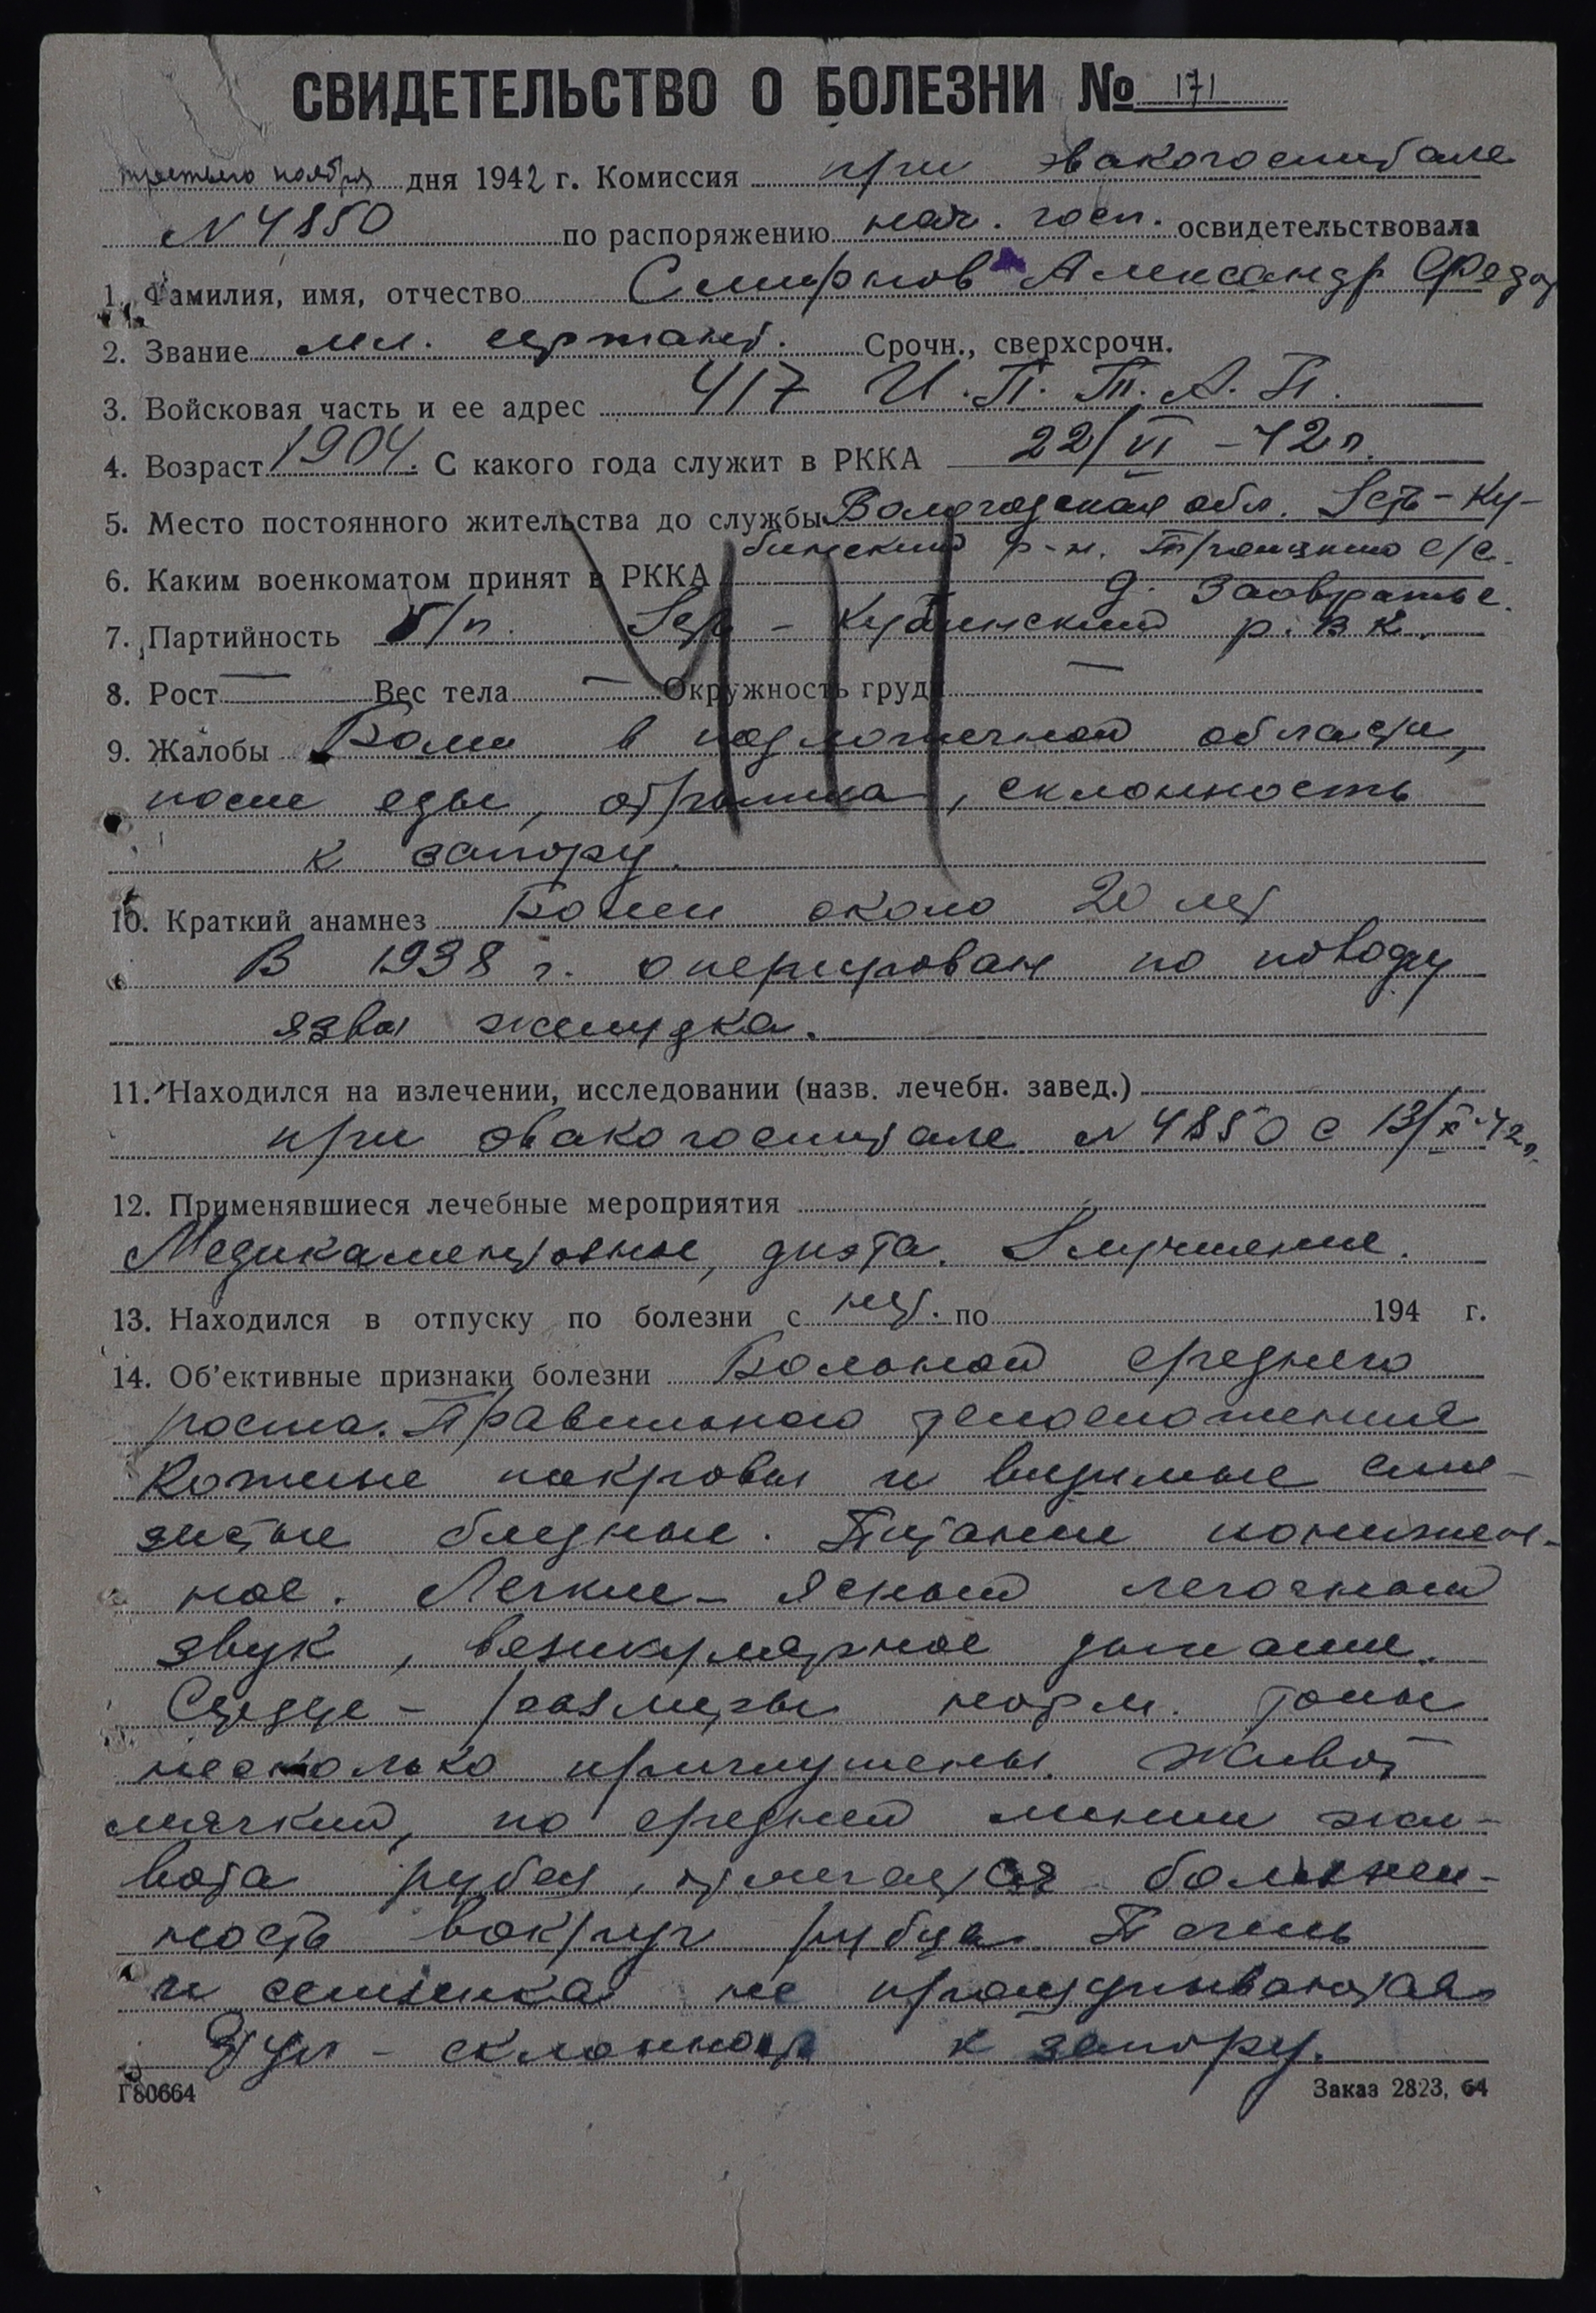 СВИДЕТЕЛЬСТВО О БОЛЕЗНИ № 171
третьего ноября дня 1942 г. Комиссия при эвакогоспитале
N 4850 по распоряжению нач. госп. освидетельствовала
1. Фамилия, имя, отчество Смирнов Александр Федор
2. Звание мл. сержант. Срочн., сверхсрочн.
3. Войсковая часть и ее адрес 417 И.П.Т.А.П.
4. Возраст 1904. С какого года служит в РККА 22/VI-42г.
5. Место постоянного жительства до службы Вологодская обл. Усть-Ку-
бинский р-н. Троицкий с/с.
6. Каким военкоматом принят в РККА д. Заовражье.
7. Партийность б/п. Усть-Кубинский р.в.к.
8. Рост — Вес тела — Окружность груди —
9. Жалобы Боли в подложечной области,
после еды, отрыжка, склонность
к запору.
10. Краткий анамнез Болен около 20 лет
В 1938 г. оперирован по поводу
язвы желудка.
11. Находился на излечении, исследовании (назв. лечебн. завед.)
при эвакогоспитале N 4850 с 13/X-42г.
12. Применявшиеся лечебные мероприятия
Медикаментозные, диэта. Улучшение.
13. Находился в отпуску по болезни с нет. по 194 г.
14. Об'ективные признаки болезни Больной среднего
роста. Правильного телосложения
Кожные покровы и видимые сли-
зистые бледные. Питание понижен-
ное. Легкие - ясный легочный
звук, везикулярное дыхание.
Сердце - размеры норм. тоны
несколько приглушены. Живот
мягкий, по средней линии жи-
вота рубец, отмечается болезнен-
ность вокруг рубца. Печень
и селезенка не прощупываются.
Стул - склонность к запору.
Г80664 Заказ 2823, 64